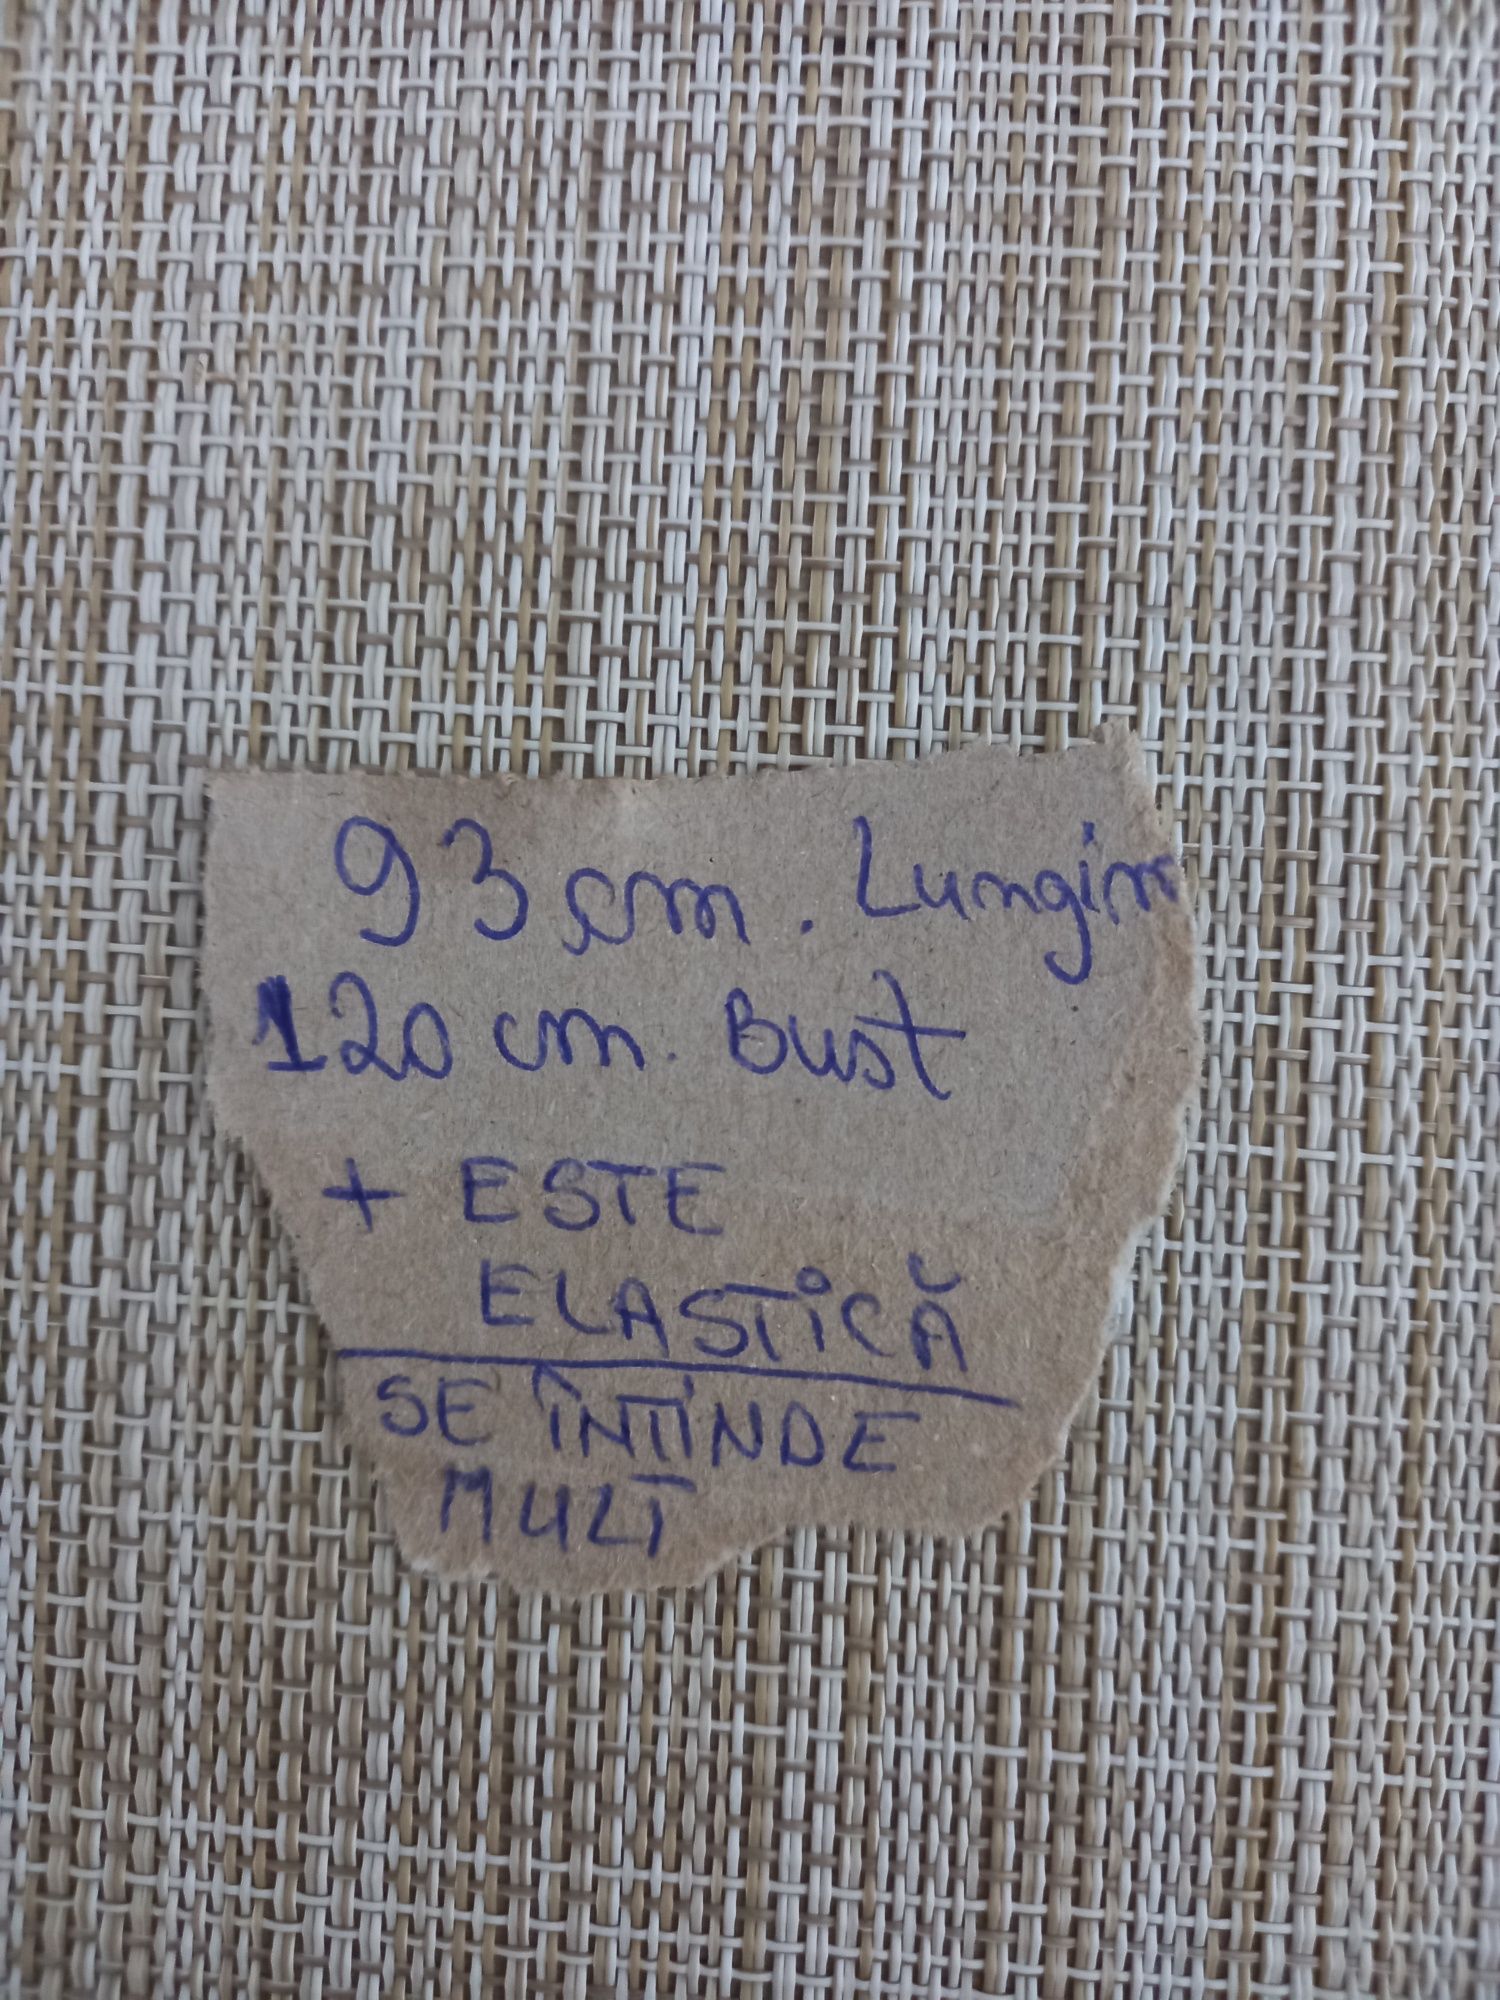 93 cm. Lungim
120 cm. Bust
+ ESTE
ELASTICĂ
SE ÎNTINDE
MULT